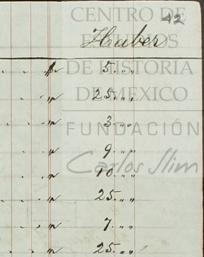 42
CENTRO DE
ESTUDIOS
Haber
DE HISTORIA
DE MEXICO
FUNDACIÓN
Carlos Slim
" 5 " "
" 25 " "
" 3 " "
" 9 " "
" 10 " "
" 25 " "
" 7 " "
" 25 " "